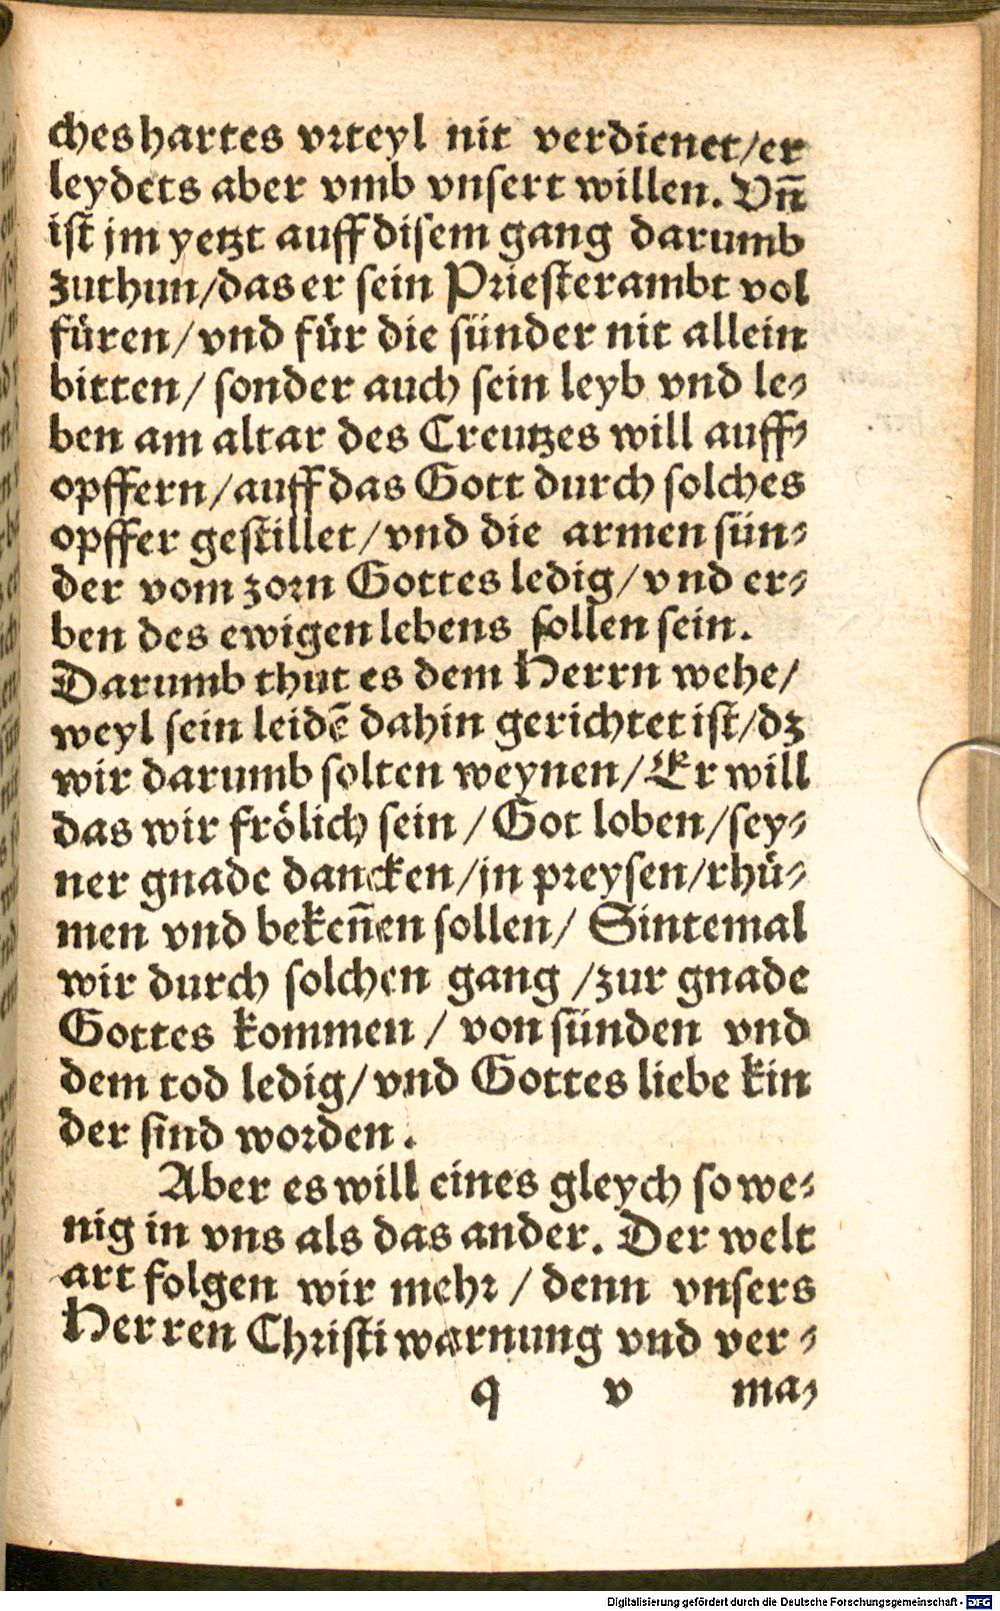 ches hartes vrteyl nit verdienet/er
leydets aber vmb vnsert willen. Vñ
ist jm yetzt auff disem gang darumb
zuthun/das er sein Priesterambt vol
füren/vnd für die sünder nit allein
bitten/ sonder auch sein leyb vnd le⸗
ben am altar des Creutzes will auff⸗
opffern/auff das Gott durch solches
opffer gestillet/vnd die armen sün⸗
der vom zorn Gottes ledig/vnd er⸗
ben des ewigen lebens sollen sein.
Darumb thut es dem Herrn wehe/
weyl sein leidē dahin gerichtet ist/dz
wir darumb solten weynen/Er will
das wir frölich sein/Got loben/sey⸗
ner gnade dancken/jn preysen/rhü⸗
men vnd bekeñen sollen/ Sintemal
wir durch solchen gang /zur gnade
Gottes kommen/ von sünden vnd
dem tod ledig/vnd Gottes liebe kin
der sind worden.
Aber es will eines gleych so we⸗
nig in vns als das ander. Der welt
art folgen wir mehr/ denn vnsers
Herren Christi warnung vnd ver⸗
q v ma⸗
Digitalisierung gefördert durch die Deutsche Forschungsgemeinschaft - DFG